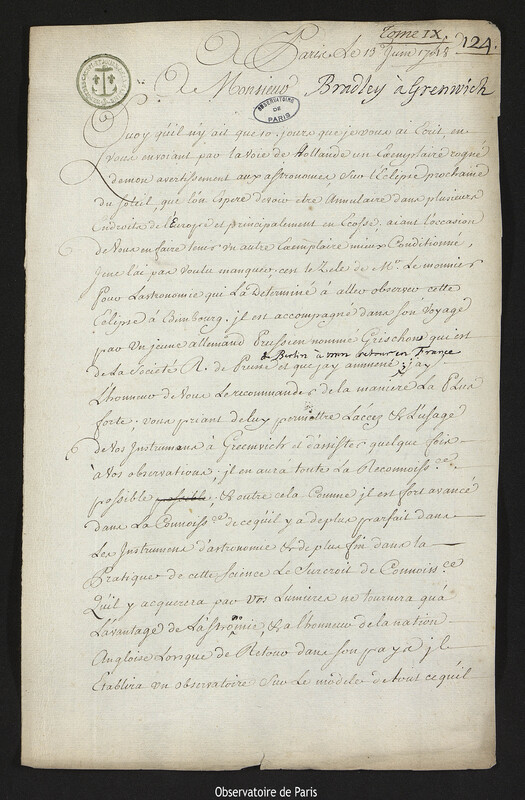 Tome IX
124.
à Paris Le 13 Juin 1748
à Monsieur Bradley à Grenwich
OBSERVATOIRE DE PARIS
Quoy qu'il n'y ait que 10. jours que je vous ai Ecrit, en
vous envoiant par la voie de Hollande un Exemplaire rogné
de mon avertissement aux astronomes, Sur l'Eclipse prochaine
du soleil, que l'on Espere devoir etre Annulaire dans plusieurs
Endroits de l'Europe et principalement en Ecosse, aiant l'occasion
de Vous en faire tenir un autre Exemplaire mieux Conditionné,
je ne l'ai pas voulu manquer, cest le Zele de Mr. Le monnier
Pour Lastronomie qui La Determiné à aller observer cette
Eclipse à Edimbourg. jl est accompagné dans son voyage
par un jeune allemand Prussien nommé Grischow qui est
de La Societé R. de Prusse et que jay ammené de Berlin à mon retour en France ; j'ay
L'honneur de Vous Le recommander de la maniere La Plus
forte ; vous priant de luy permettre L'accès & L'usage
de Vos Instrumens à Greenwich et d'assister quelque fois
à Vos observations ; jl en aura toute La Reconnoissce.
possible, & outre cela Comme jl est fort avancé
dans La Connoissce. de ce qu'il y a de plus parfait dans
Les Instrumens d'astronomie & de plus fin dans la
Pratique de cette Science Le Surcroit de Connoissce
Qu'il y acquerera par Vos Lumieres ne tournera qu'à
L'avantage de L'Astronomie, & a L'honneur de la nation
Angloise Lorsque de Retour dans son pays jl
Etablira un observatoire Sur Le modele de tout ce qu'il
Observatoire de Paris